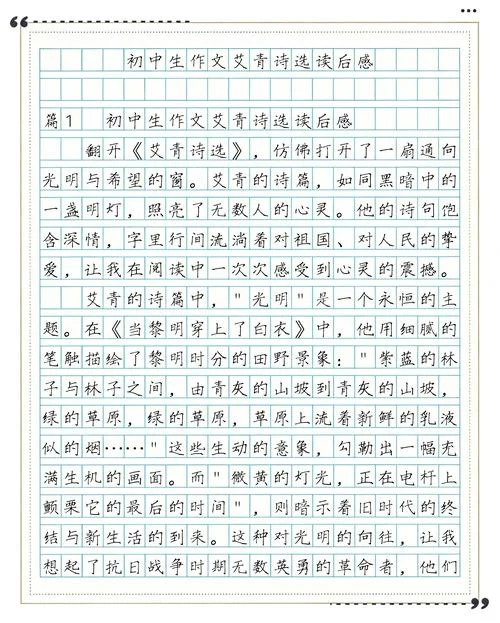 初中生作文艾青诗选读后感
篇1 初中生作文艾青诗选读后感
翻开《艾青诗选》，仿佛打开了一扇通向
光明与希望的窗。艾青的诗篇，如同黑暗中的
一盏明灯，照亮了无数人的心灵。他的诗句饱
含深情，字里行间流淌着对祖国、对人民的挚
爱，让我在阅读中一次次感受到心灵的震撼。
艾青的诗篇中，"光明"是一个永恒的主
题。在《当黎明穿上了白衣》中，他用细腻的
笔触描绘了黎明时分的田野景象："紫蓝的林
子与林子之间，由青灰的山坡到青灰的山坡，
绿的草原，绿的草原，草原上流着新鲜的乳液
似的烟……"这些生动的意象，勾勒出一幅充
满生机的画面。而"微黄的灯光，正在电杆上
颤栗它的最后的时间"，则暗示着旧时代的终
结与新生活的到来。这种对光明的向往，让我
想起了抗日战争时期无数英勇的革命者，他们